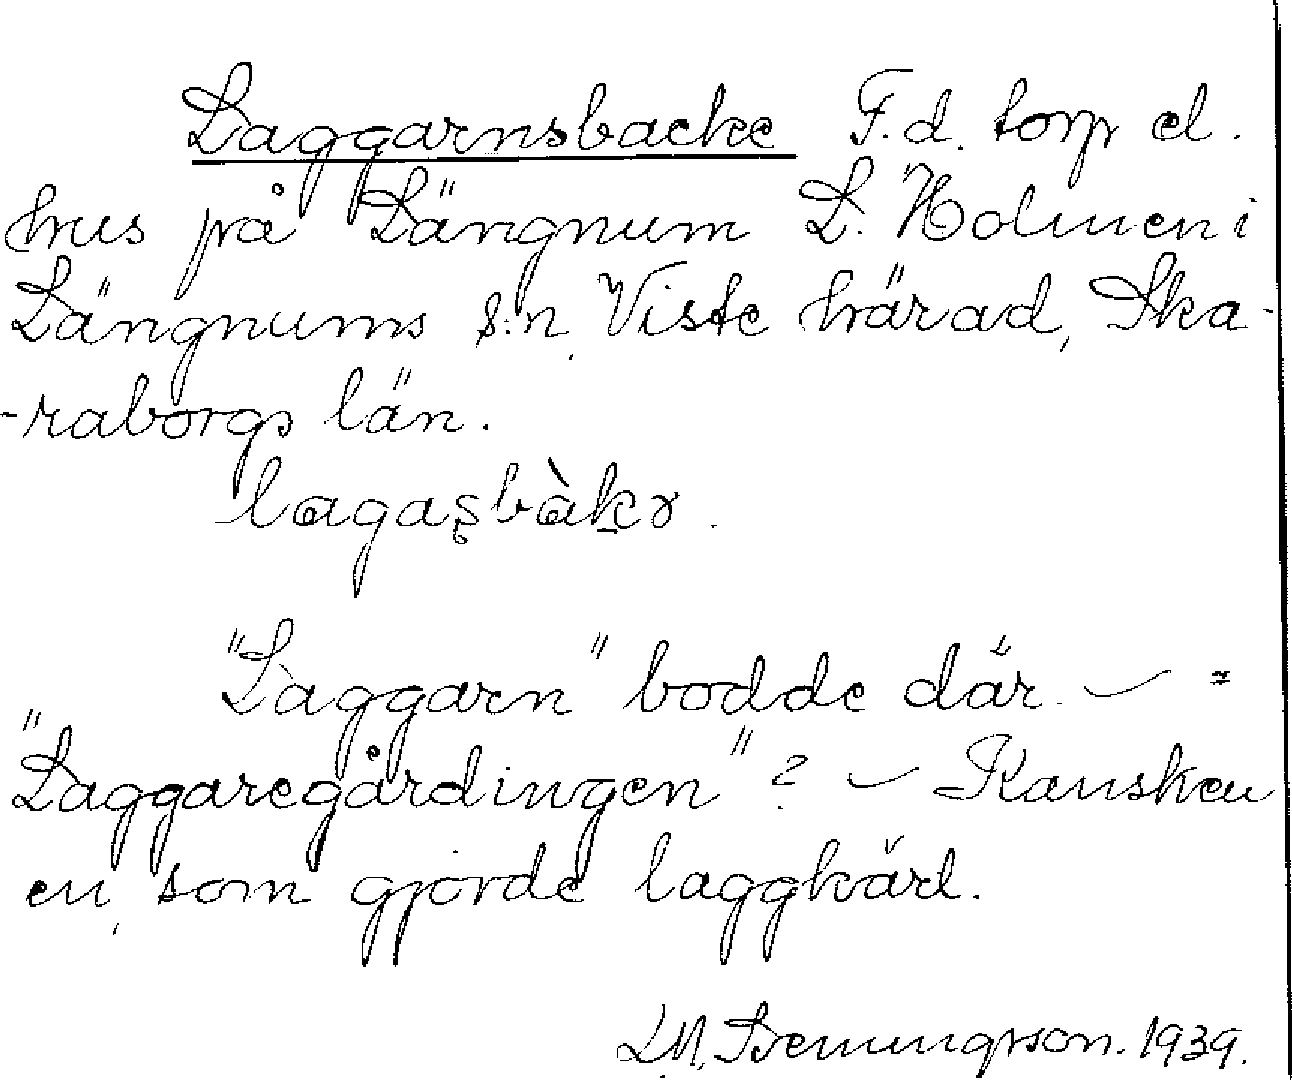 Laggarnsbacke F.d. torp el.
hus på Längnum L. Holmen i
Längnums s:n, Viste härad, Ska-
-raborgs län.
lagasbàkə.
"Laggarn" bodde där. — =
"Laggaregårdingen"? — Kansken
en, som gjorde laggkärl.
L.M. Svenungsson. 1939.